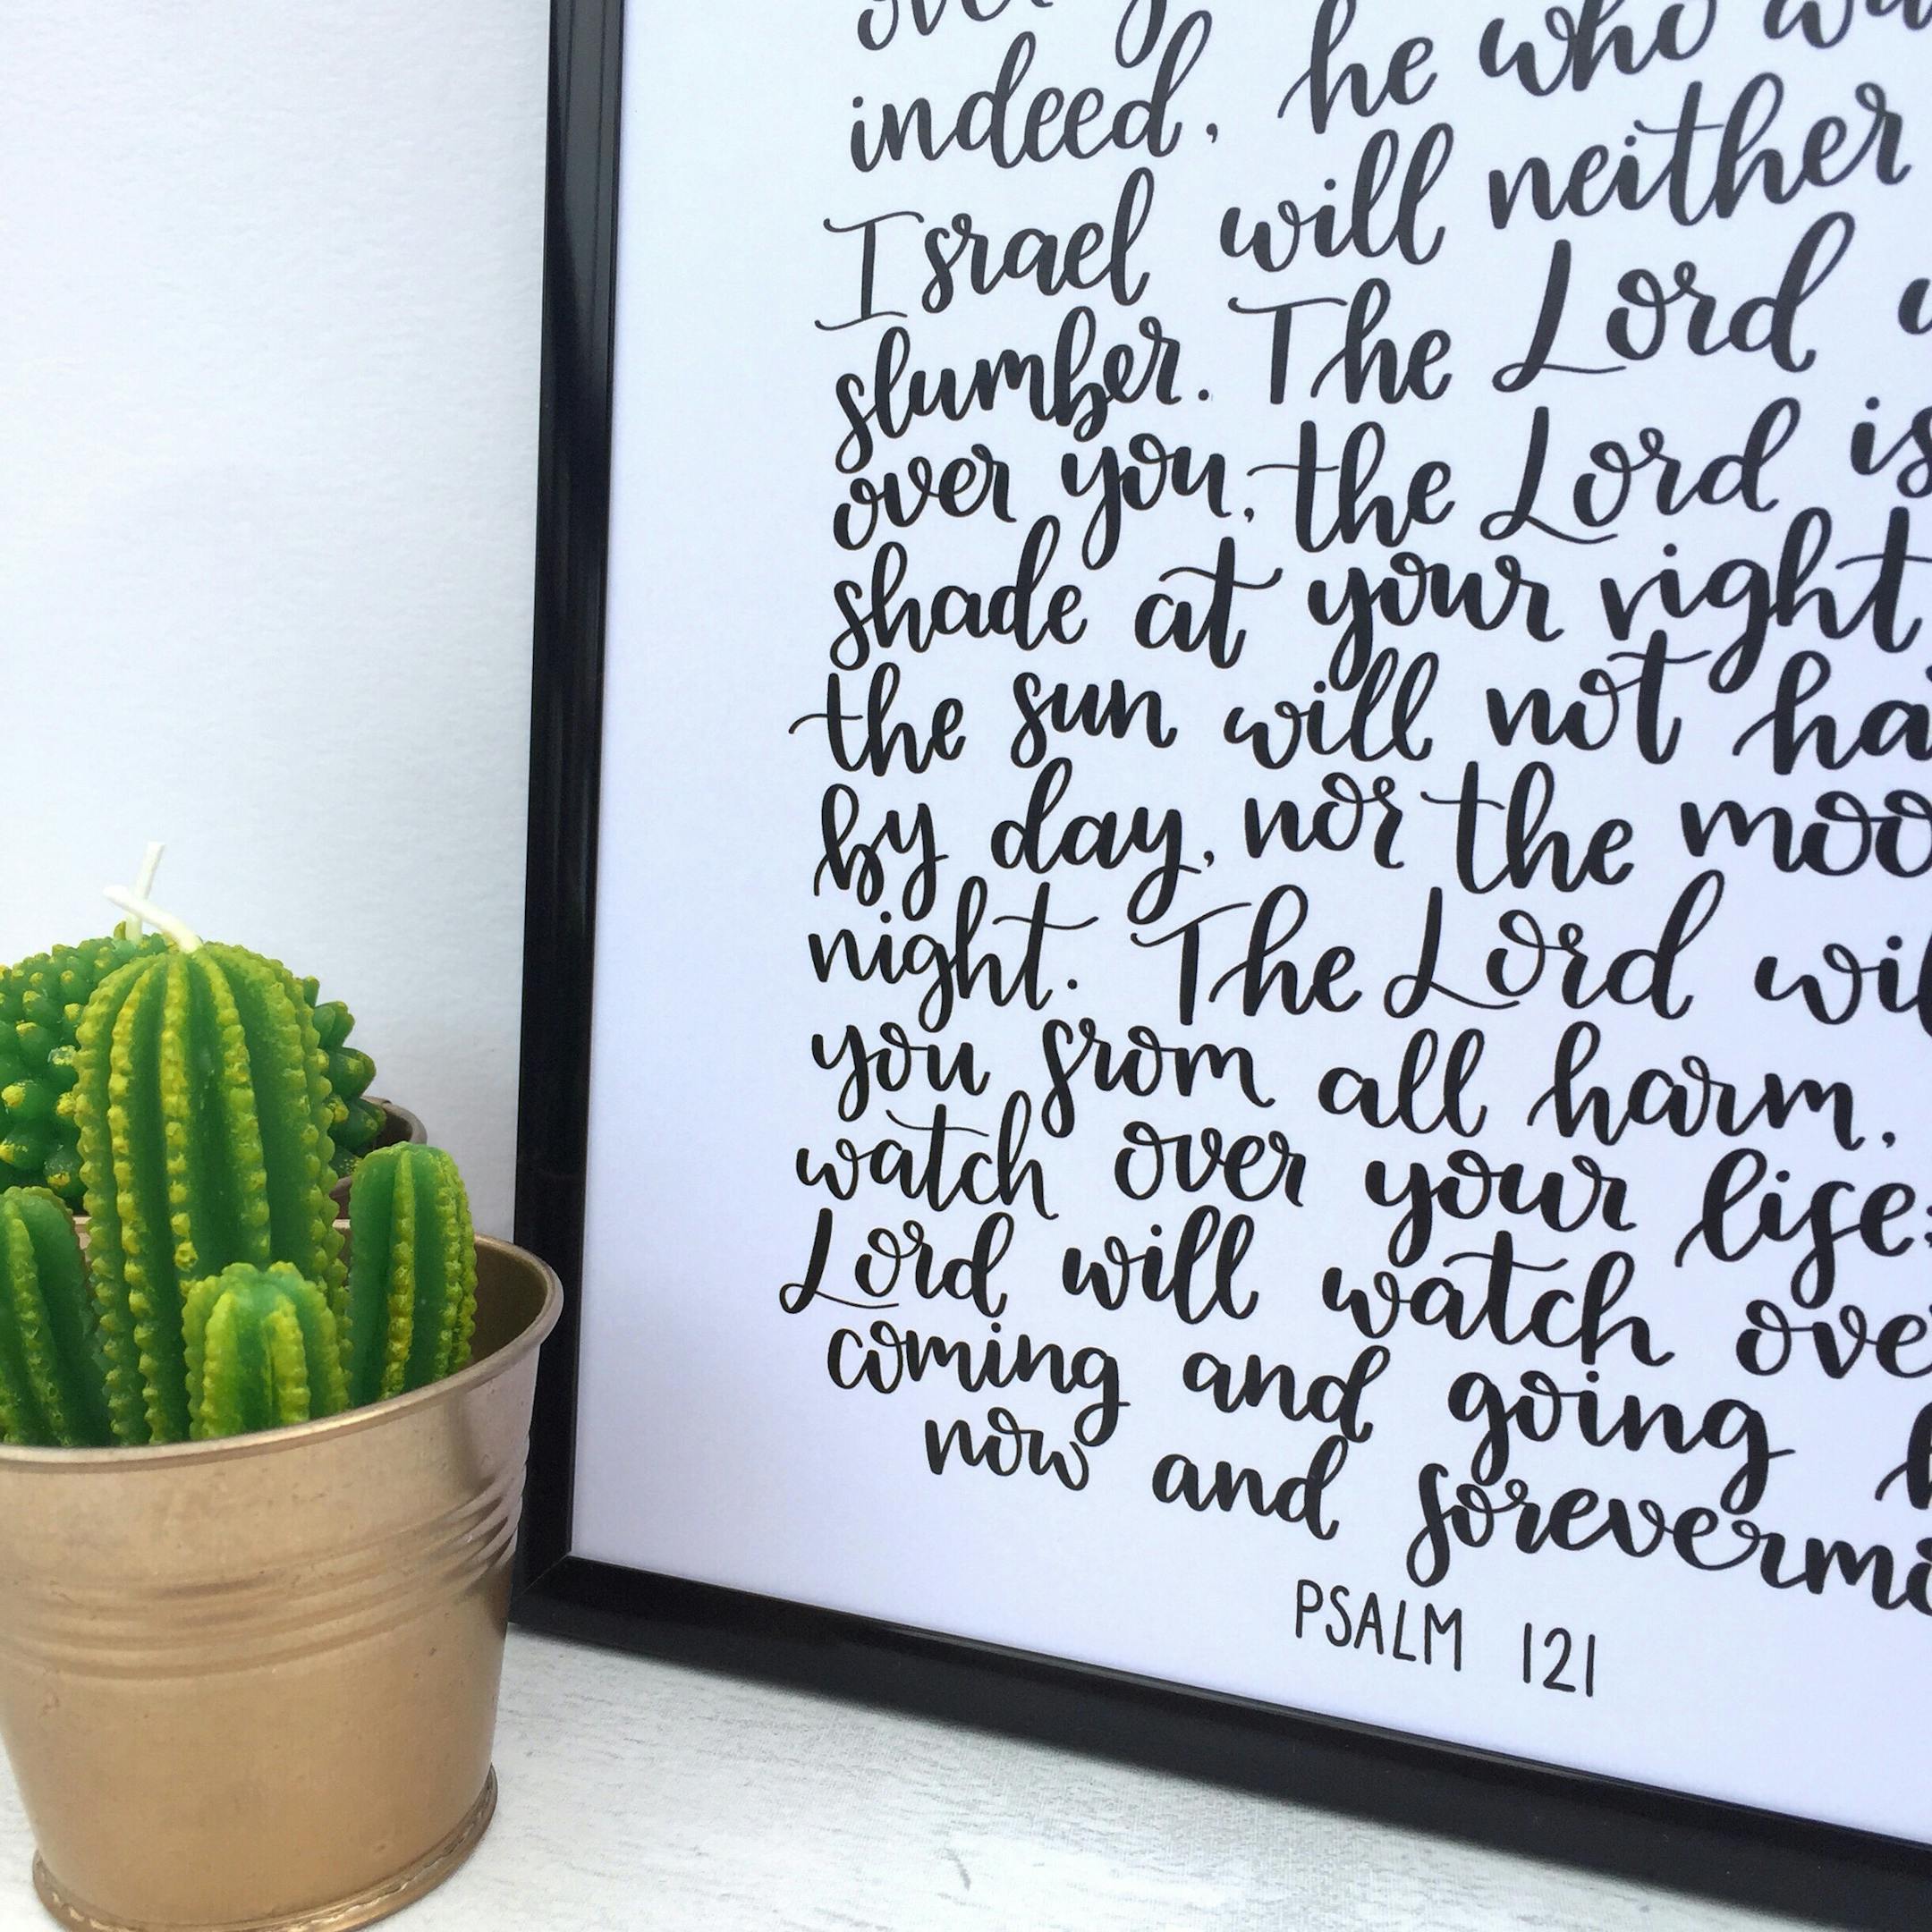 indeed, he who
Israel will neither
slumber. The Lord
over you, the Lord is
shade at your right
the sun will not
by day, nor the
night. The Lord
you from all harm,
watch over your life;
Lord will watch
coming and going
now and
PSALM 121